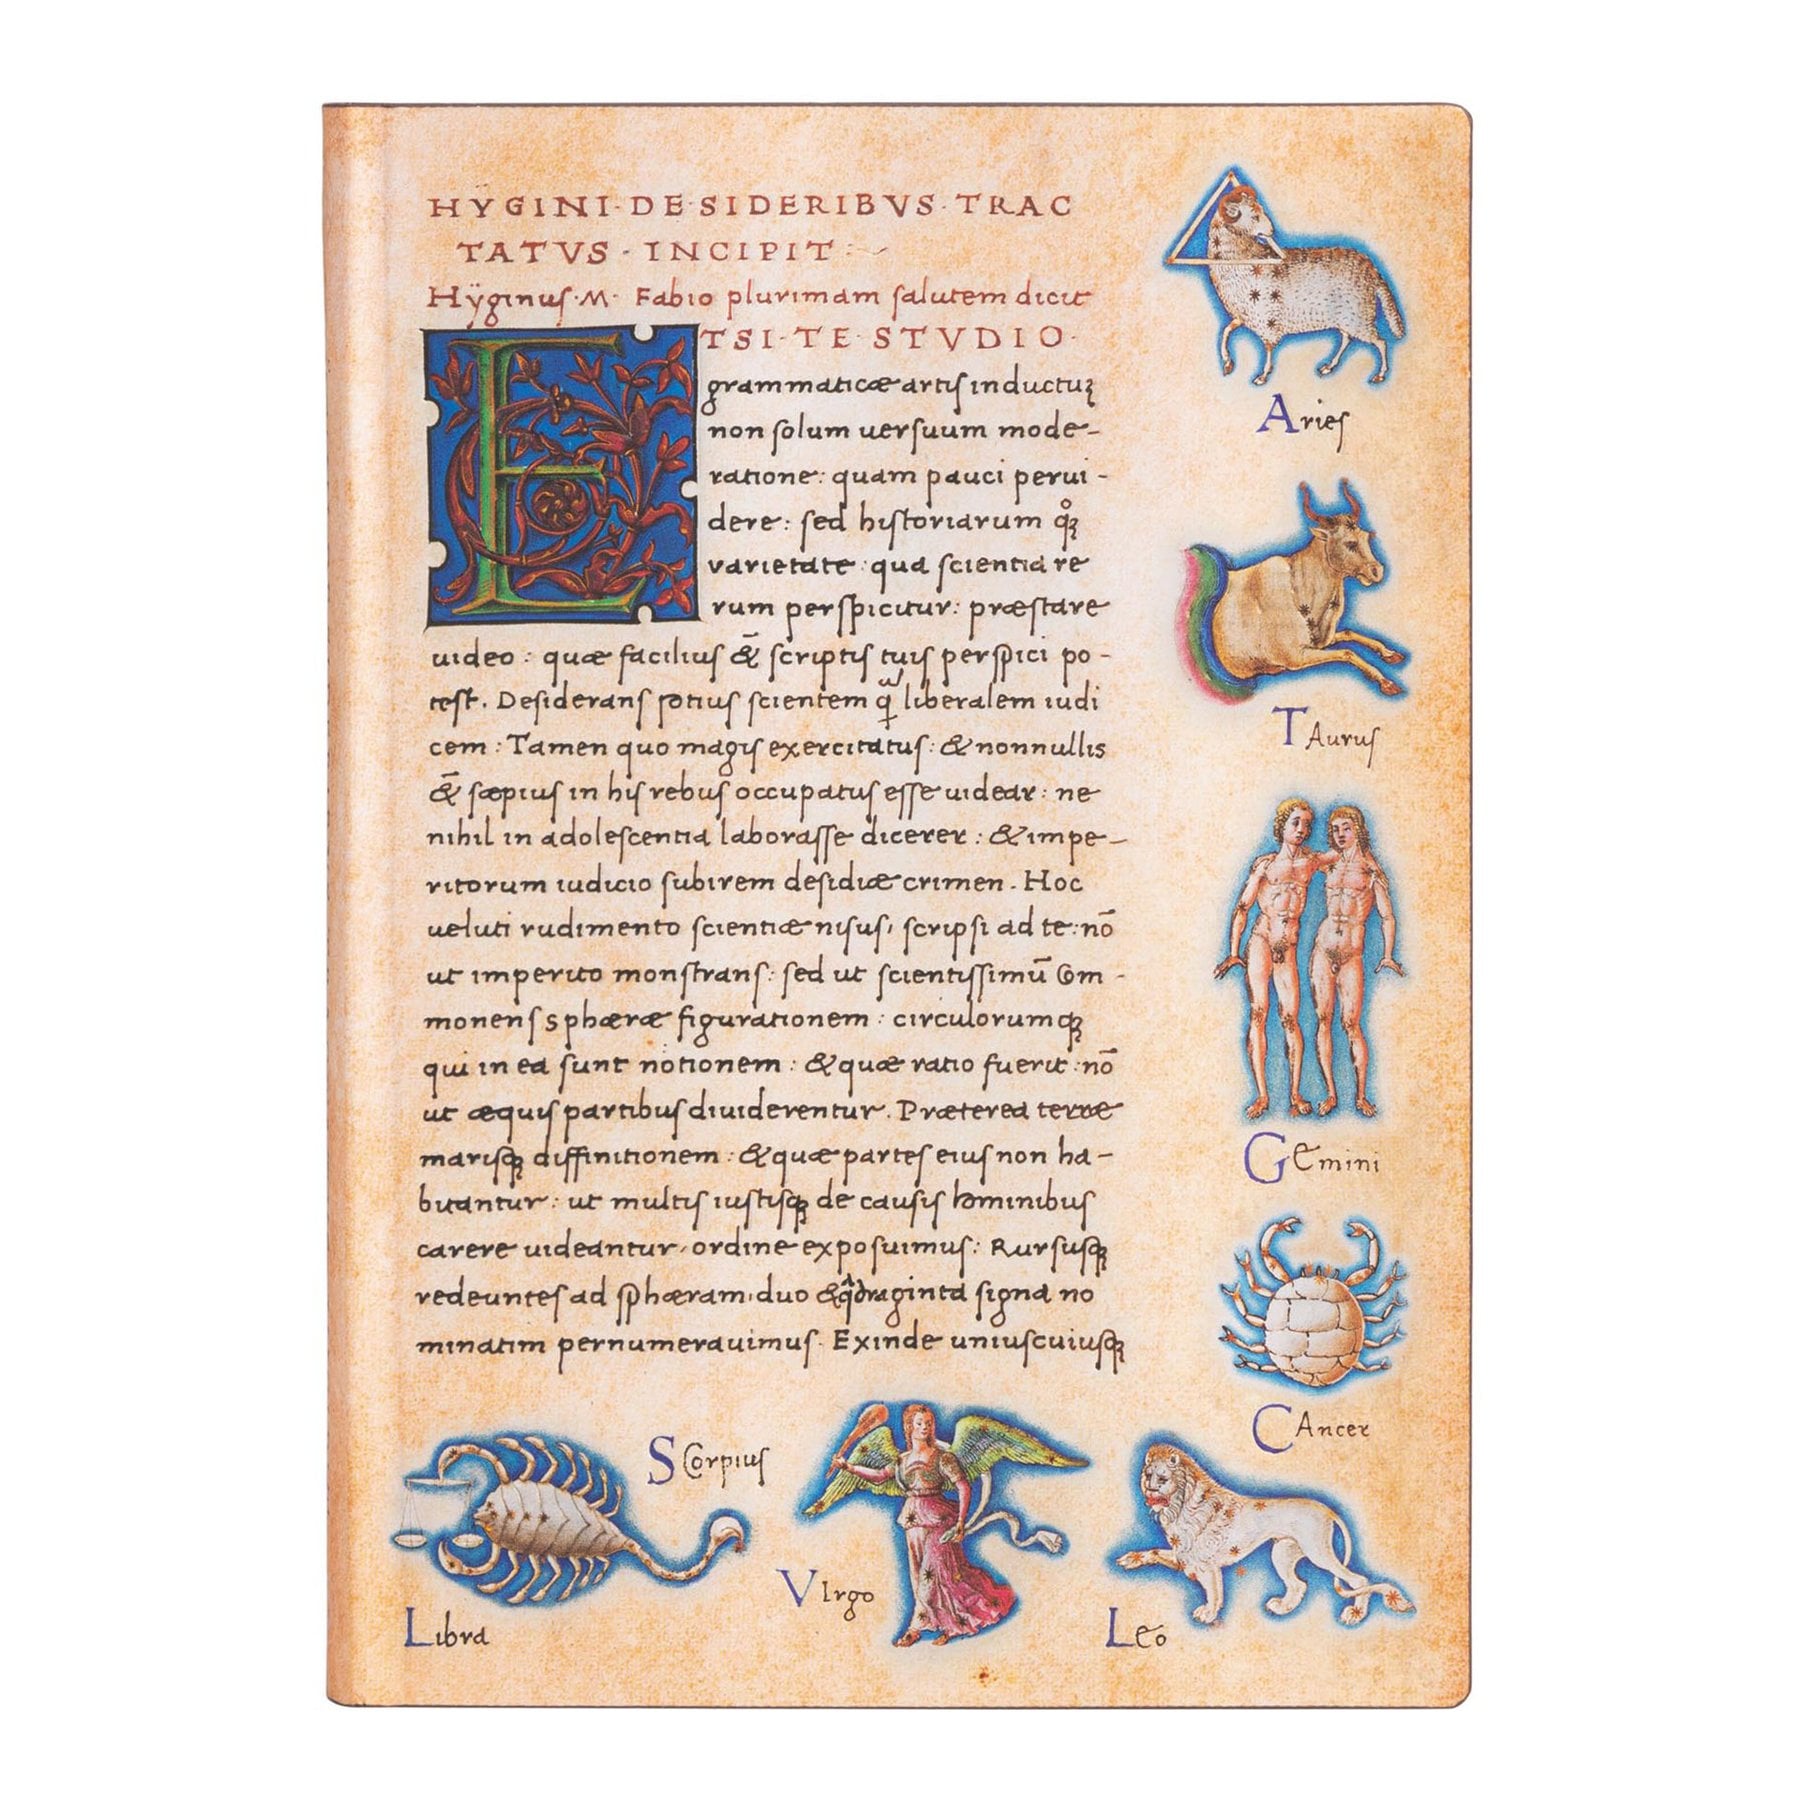 HŸGINI · DE · SIDERIBVS · TRAC
TATVS · INCIPIT :~
Hÿginuſ · M · Fabio plurimam ſalutem dicit
ETSI · TE · STVDIO ·
grammaticæ artiſ inductuꝝ
non ſolum uerſuum mode-
ratione : quam pauci perui-
dere : ſed hiſtoriarum qͦꝫ
varietate : qua ſcientia re
rum perſpicitur : præſtare
uideo : quæ faciliuſ &̄ ſcriptiſ tuiſ perſpici po-
teſt. Deſideranſ potiuſ ſcientem ꝗᷓ liberalem iudi
cem : Tamen quo magiſ exercitatuſ : & nonnullis
&̄ ſæpiuſ in hiſ rebuſ occupatuſ eſſe uidear : ne
nihil in adoleſcentia laboraſſe dicerer : & impe-
ritorum iudicio ſubirem deſidiæ crimen. Hoc
ueluti rudimento ſcientiæ niſuſ, ſcripſi ad te : nō
ut imperito monſtranſ : ſed ut ſcientiſſimū com-
monenſ sphæræ figurationem : circulorumqꝫ
qui in ea ſunt notionem : & quæ ratio fuerit : nō
ut æquiſ partibuſ diuiderentur. Præterea terræ
mariſqꝫ diffinitionem : & quæ parteſ eiuſ non ha-
bitantur : ut multiſ iuſtiſqꝫ de cauſiſ hominibuſ
carere uideantur, ordine expoſuimuſ : Rurſuſqꝫ
redeunteſ ad ſphæram, duo & qᷓdraginta ſigna no
minatim pernumerauimuſ. Exinde uniuſcuiuſqꝫ
Arieſ
TAuruſ
GEmini
CAncer
SCorpiuſ
VIrgo
Leo
Libra